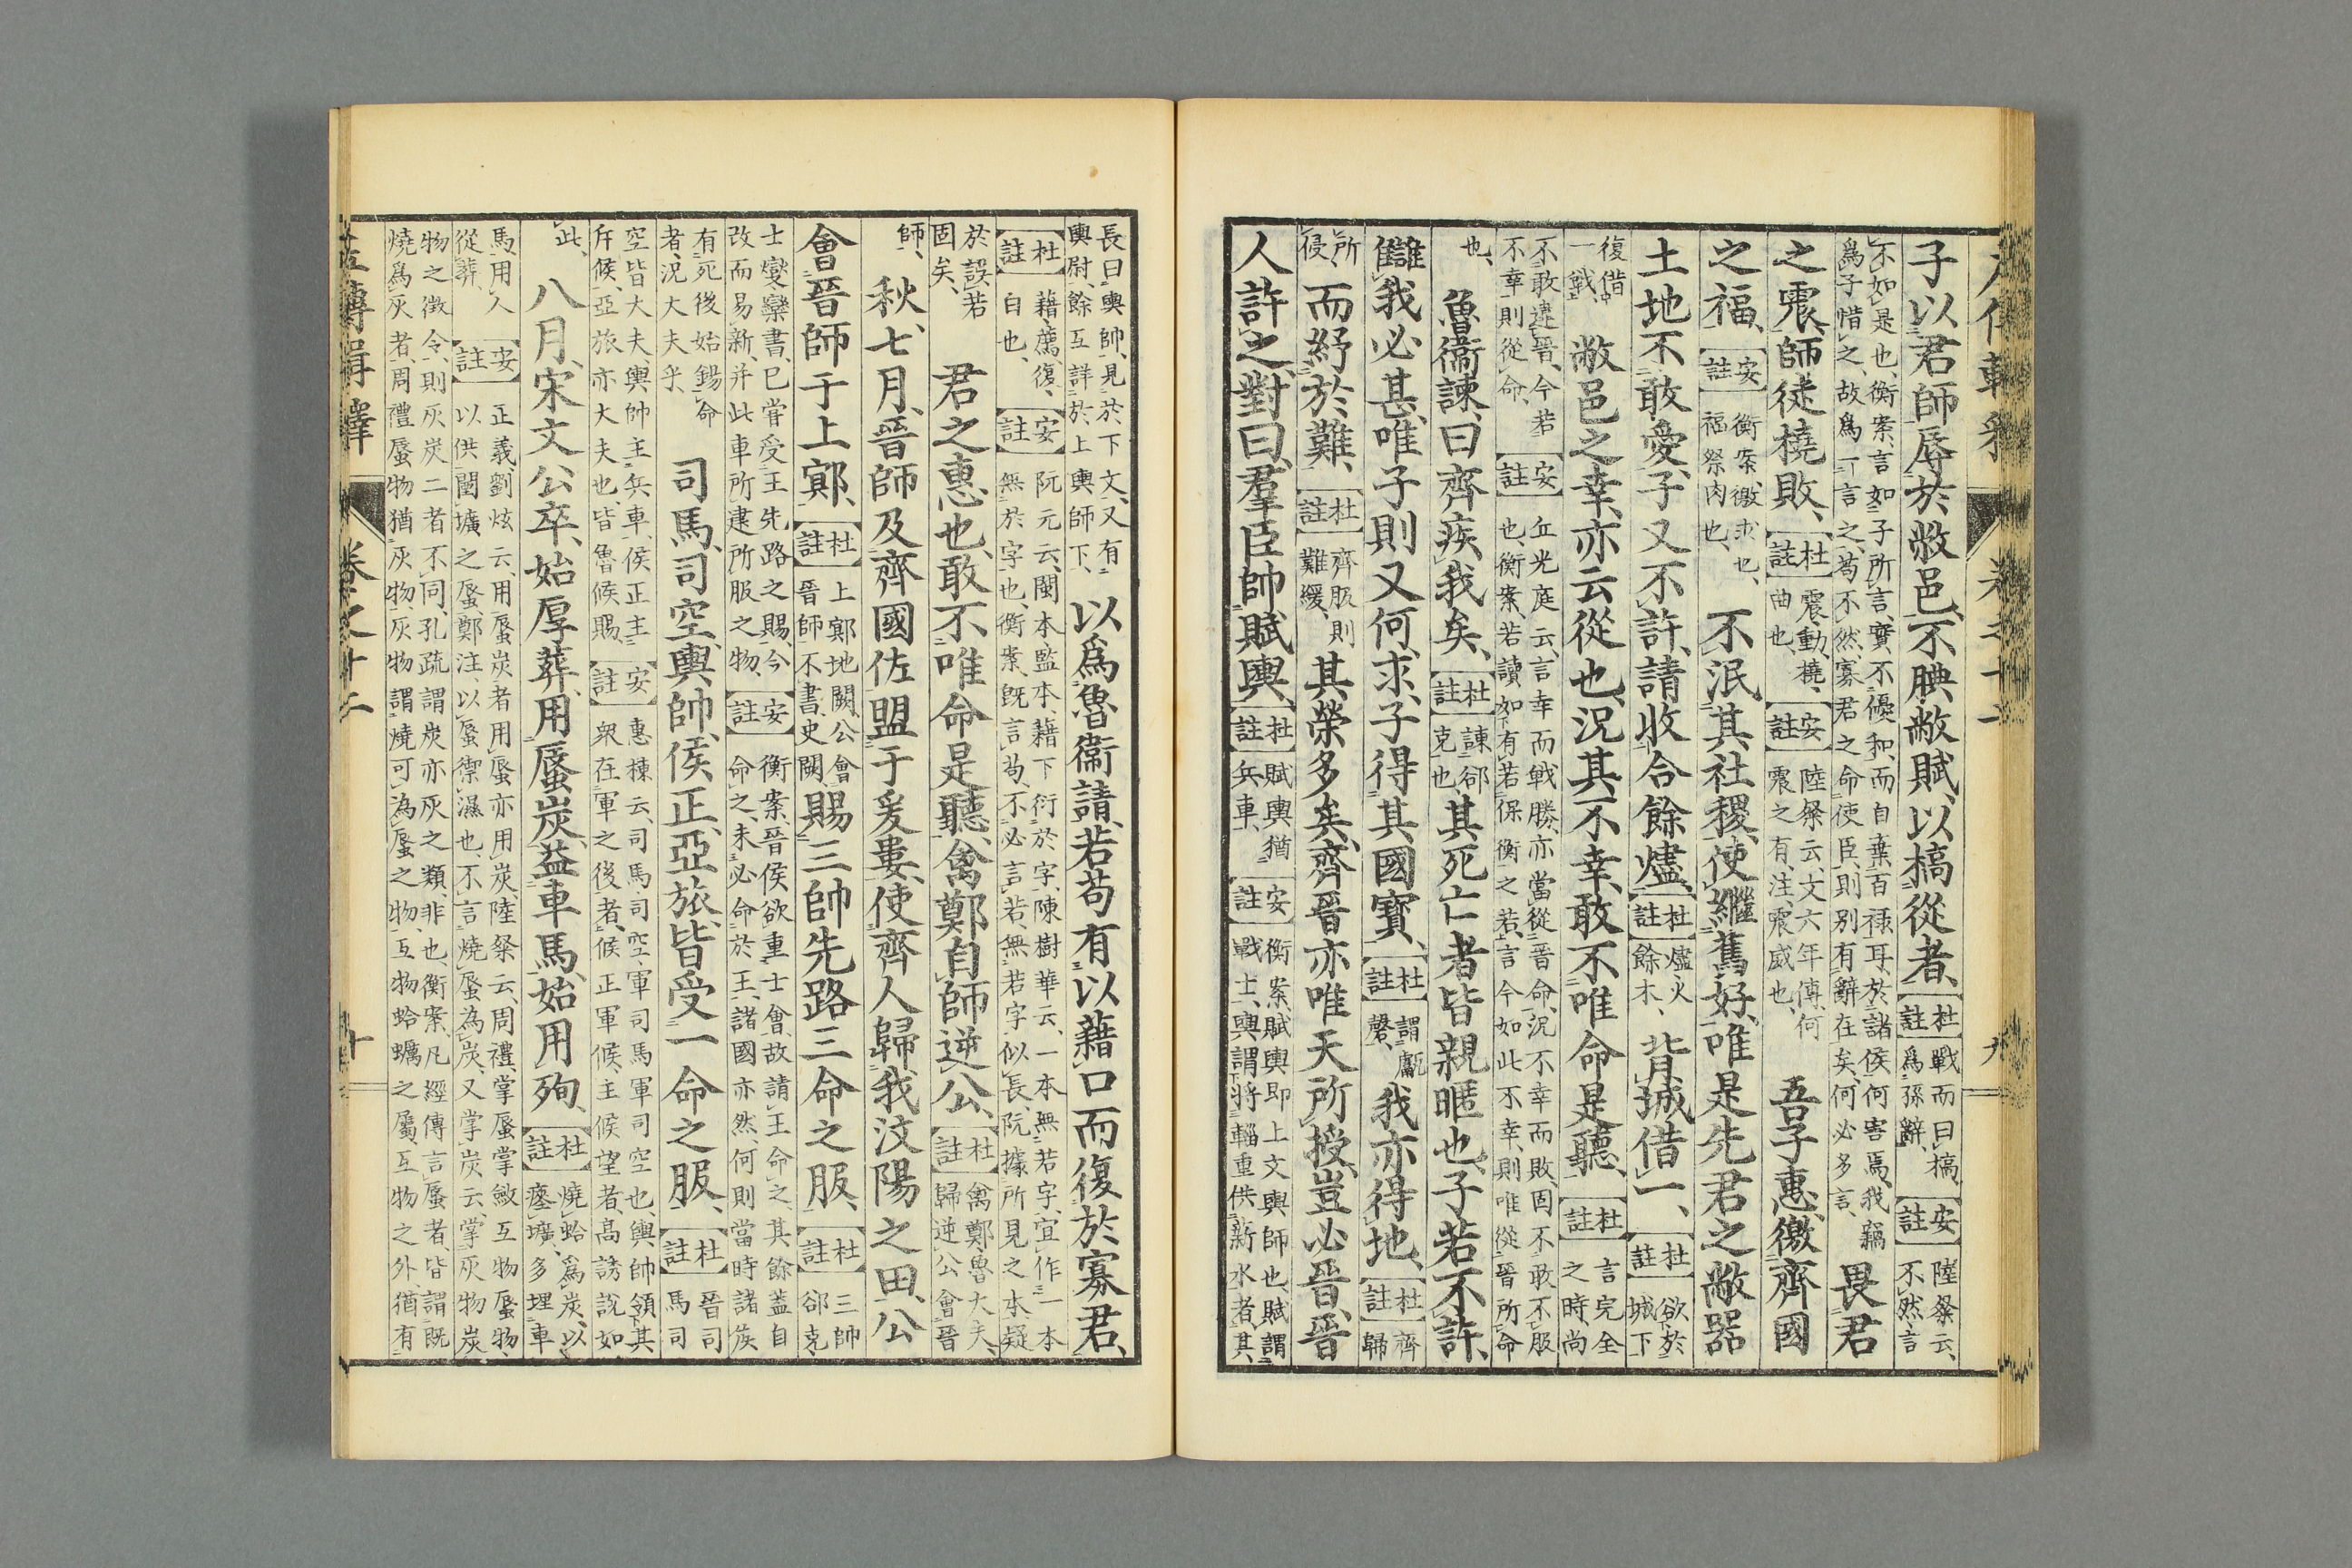 子以君師辱於敝邑、不腆敝賦、以犒從者、杜註 戰而曰犒、爲孫辭、安註 陸粲云、不然、言
不如是也、衡案、言如子所言、實不優和、而自棄百祿耳、於諸侯何害焉、我竊爲子惜之、故爲丁言之、苟不然、寡君之命使臣、則別有辭在矣、何必多言、畏君
之震、師徒橈敗、杜註 震動、橈、曲也、安註 陸粲云、文六年傳、何震之有、注、震威也、吾子惠徼齊國
之福、安註 衡案、徼求也、福祭肉也、不泯其社稷、使繼舊好、唯是先君之敝器
土地不敢愛、子又不許、請收合餘燼、杜註 燼火餘木、背城借一、杜註 欲於城下
復借一戰、敝邑之幸、亦云從也、況其不幸、敢不唯命是聽、杜註 言完全之時、尚
不敢違晉、今若不幸則從命、安註 丘光庭云、言幸而戰勝、亦當從晉命、況不幸而敗、固不敢不服也、衡案、若讀如有若保衡之若、言今如此不幸、則唯從晉所命
也、魯衞諫曰、齊疾我矣、杜註 諫郤克也、其死亡者皆親暱也、子若不許、
讎我必甚、唯子則又何求、子得其國寶、杜註 謂甗磬、我亦得地、杜註 齊歸
所侵、而紓於難、杜註 齊服則難緩、其榮多矣、齊晉亦唯天所授、豈必晉、晉
人許之、對曰、羣臣帥賦輿、杜註 賦輿猶兵車、安註 衡案、賦輿即上文輿師也、賦謂戰士、輿謂將輜重供薪水者、其
九
長曰輿帥、見於下文、又有輿尉、餘互詳於上輿師下、以爲魯衞請、若苟有以藉口而復於寡君、
杜註 藉、薦、復、白也、安註 阮元云、閩本監本、藉下衍於字、陳樹華云、一本無若字、宜作一本無於字也、衡案、既言苟、不必言若、無若字似長、阮據所見之本、疑
於誤若固矣、君之惠也、敢不唯命是聽、禽鄭自師逆公、杜註 禽鄭魯大夫、歸逆公會晉
師、秋七月、晉師及齊國佐盟于爰婁、使齊人歸我汶陽之田、公
會晉師于上鄍、杜註 上鄍地闕、公會晉師不書、史闕、賜三帥先路三命之服、杜註 三帥郤克、
士燮欒書、已嘗受王先路之賜、今改而易新、并此車所建所服之物、安註 衡案、晉侯欲重士會、故請王命之、其餘蓋自命之、未必命於王、諸國亦然、何則當時諸侯
有死後始錫命者、況大夫乎、司馬、司空、輿帥、侯正、亞旅、皆受一命之服、杜註 晉司馬司
空皆大夫、輿帥主兵車、侯正主斥候、亞旅亦大夫也、皆魯侯賜、安註 惠棟云、司馬司空、軍司馬軍司空也、輿帥領其衆在軍之後者、候正軍候、主候望者、高誘說如
此、八月、宋文公卒、始厚葬、用蜃炭、益車馬、始用殉、杜註 燒蛤爲炭、以瘞壙、多埋車
馬、用人從葬、安註 正義、劉炫云、用蜃炭者、用蜃亦用炭、陸粲云、周禮掌蜃、掌斂互物蜃物、以供闉壙之蜃、鄭注、以蜃禦濕也、不言燒蜃為炭、又掌炭云、掌灰物炭
物之徵令、則灰炭二者不同、孔疏謂炭亦灰之類、非也、衡案、凡經傳言蜃者、皆謂既燒爲灰者、周禮蜃物猶灰物、灰物謂燒可為蜃之物、互物蛤蠣之屬、互物之外、猶有
左傳輯釋 卷之十二 十